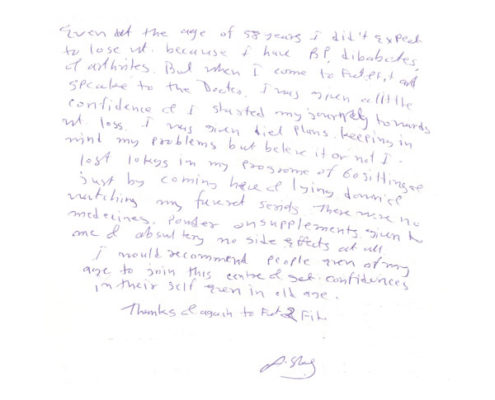 Even at the age of 58 years I did't expect
to lose wt. because I have BP, dibabetes,
& arthrites. But when I come to Fat2Fit and
speake to the Doctor. I was given all the
confidence & I started my journey towards
wt loss. I was given diet plans. keeping in
mind my problems but beleve it or not I
lost 10kgs in my programe of 60 sittings
just by coming here & lying down &
watching my serels. There were no
medecines, Powder or supplements given to
me & absultery no side effects at all.
I would recommend people even of my
age to join this centre & get confidences
in their self even in old age.
Thanks & again to Fat 2 Fit.